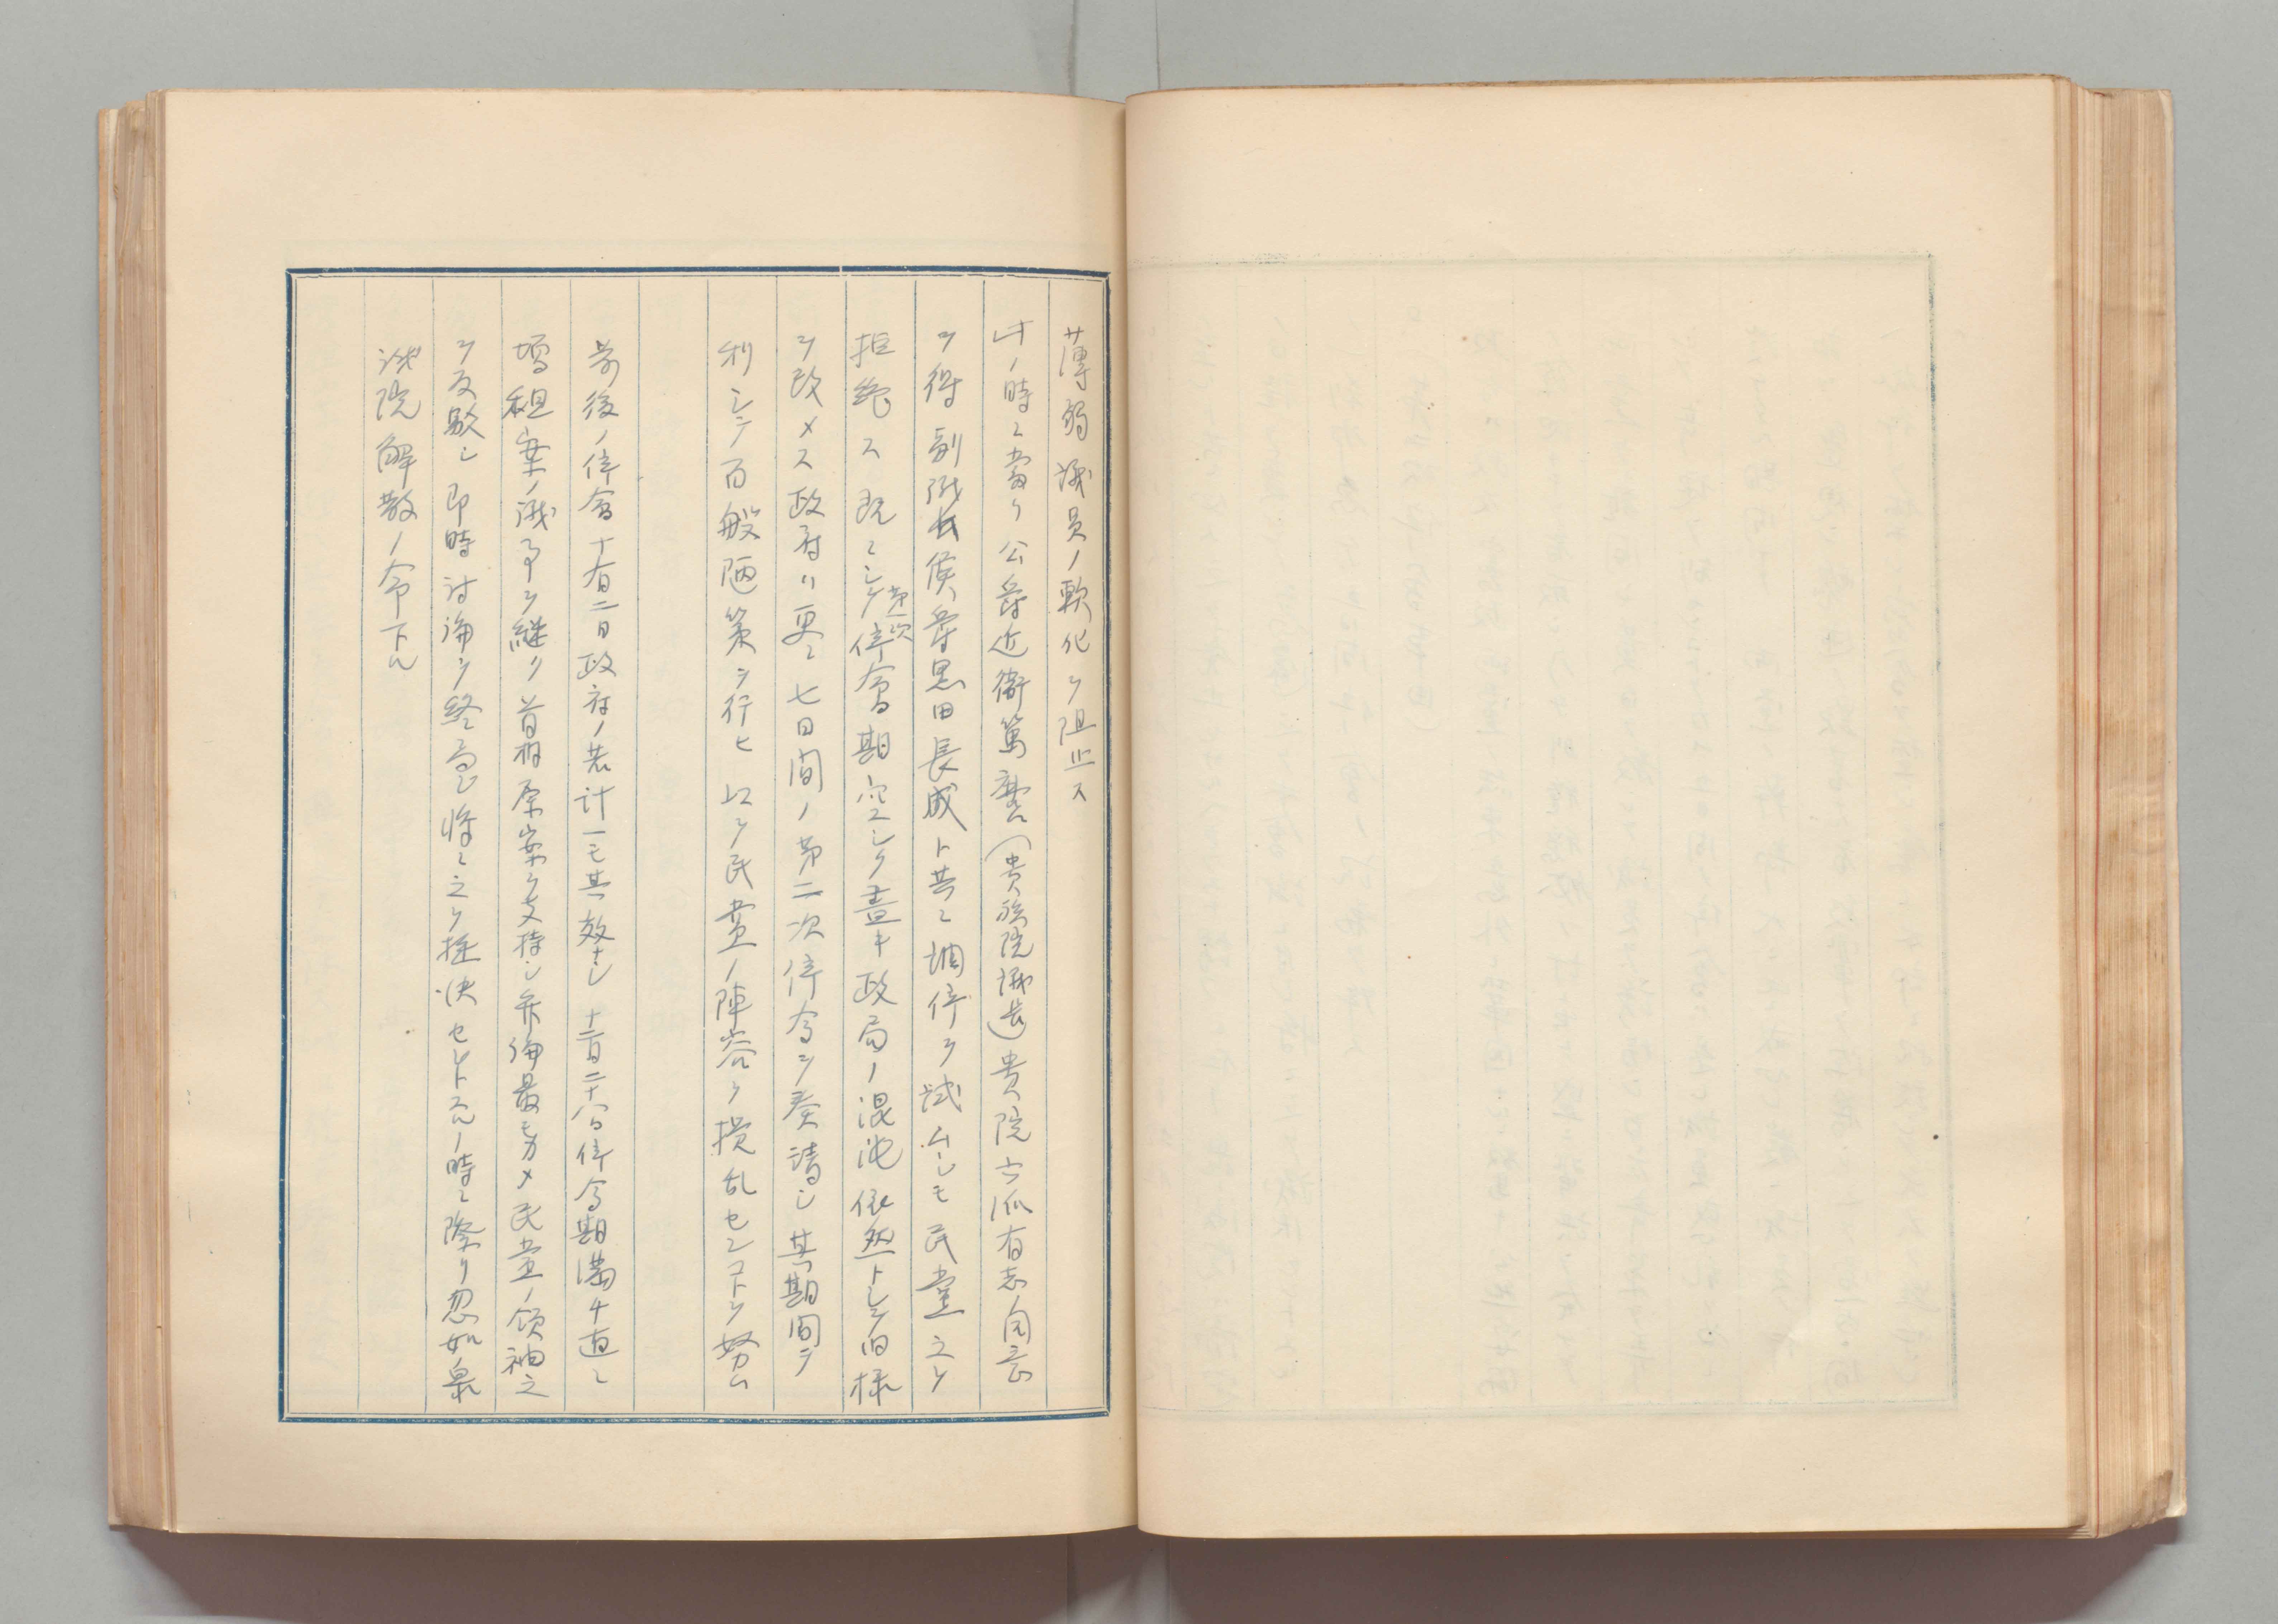 薄弱議員ノ軟化ヲ阻止ス
此ノ時ニ當リ公爵近衛篤麿（貴族院議長）貴院六派有志ノ同意
ヲ得副議長侯爵黒田長成ト共ニ調停ヲ試ムルモ民党之ヲ
拒絶ス既ニシテ第一次停會期空シク盡キ政局ノ混沌依然トシテ旧様
ヲ改メス政府ハ更ニ七日間ノ第二次停会ヲ奏請シ其期間ヲ
利シテ百般陋策ヲ行ヒ以テ民党ノ陣容ヲ攪乱センコトヲ努ム
前後ノ停會十有二日政府ノ苦計一モ其効ナシ十二月二十八日停会期満チ直ニ
増租案ノ議事ヲ継ク首相原案ヲ支持シ弁論最モ力メ民党ノ領袖之
ヲ反駁シ即時討論ヲ終局シ将ニ之ヲ採決セントスルノ時ニ際リ忽如
議院解散ノ命下ル